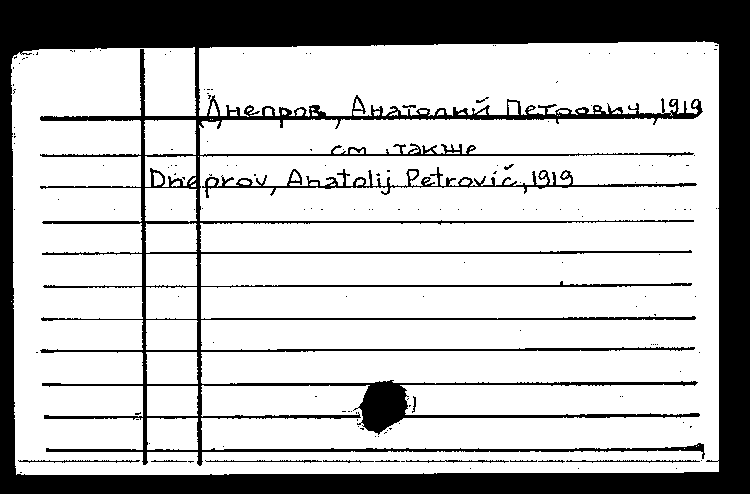 Днепров, Анатолий Петрович, 1919
см. также
Dneprov, Anatolij Petrovič, 1919